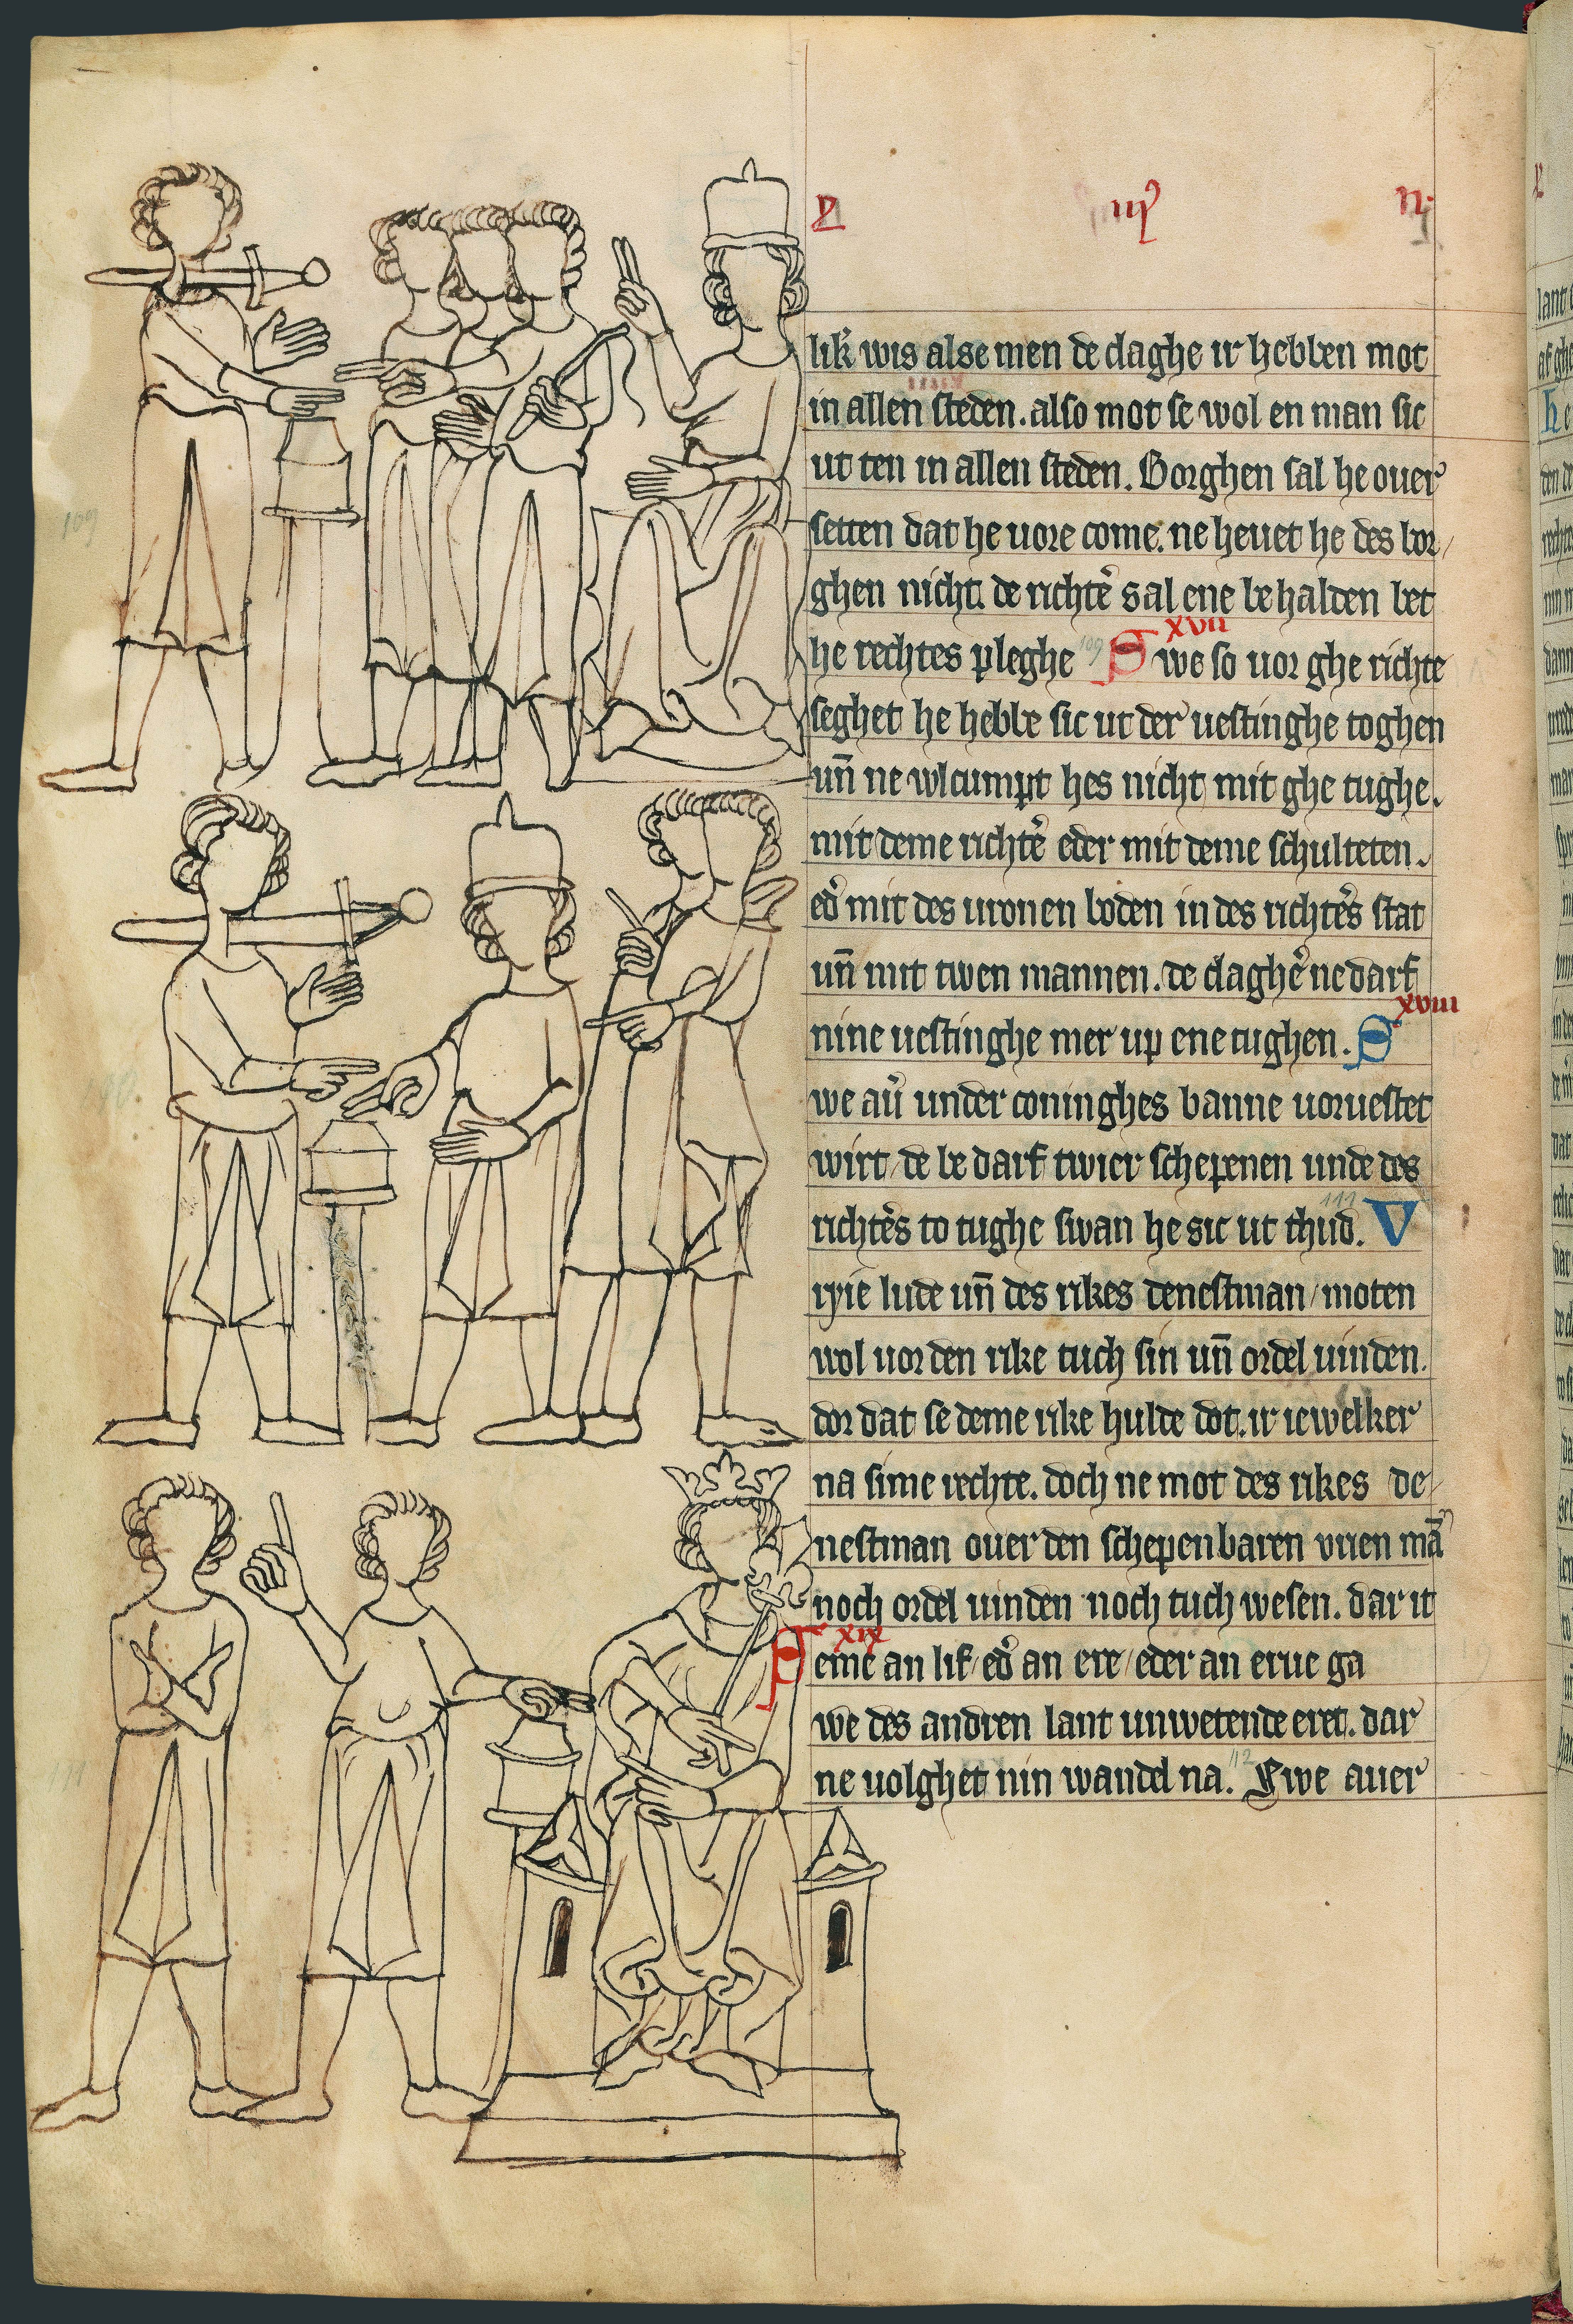 lik wis alse men de claghe ir hebben mot
in allen steden. also mot se wol en man sic
ut ten in allen steden. Borghen sal he ouer
setten dat he uore come. ne heuet he des bor/
ghen nicht. de richtẽ sal ene behalden bet
xvii
he rechtes pleghe Swe so uor ghe richte
seghet he hebbe sic ut der uestinghe toghen
uñ ne wlcumpt hes nicht mit ghe tughe.
mit deme richtẽ eder mit deme schulteten.
eð mit des uronen boden in des richtẽs stat
uñ mit twen mannen. de claghẽ ne darf
xviii
nine uestinghe mer up ene tughen. S
we aũ under coninghes banne uoruestet
wirt/ de be darf twier schepenen unde des
richtẽs to tughe swan he sic ut thud. V
ryie lude uñ des rikes denestman/moten
wol uor den rike tuch sin uñ ordel uinden.
dor dat se deme rike hulde dot. ir iewelker
na sime rechte. doch ne mot des rikes de/
nestman ouer den schepenbaren vrien mã
noch ordel uinden noch tuch wesen. dar it
xix
S eme an lif/ eð an ere/ eder an erue ga
we des andren lant unwetende eret. dar
ne uolghet nin wandel na. Swe auer